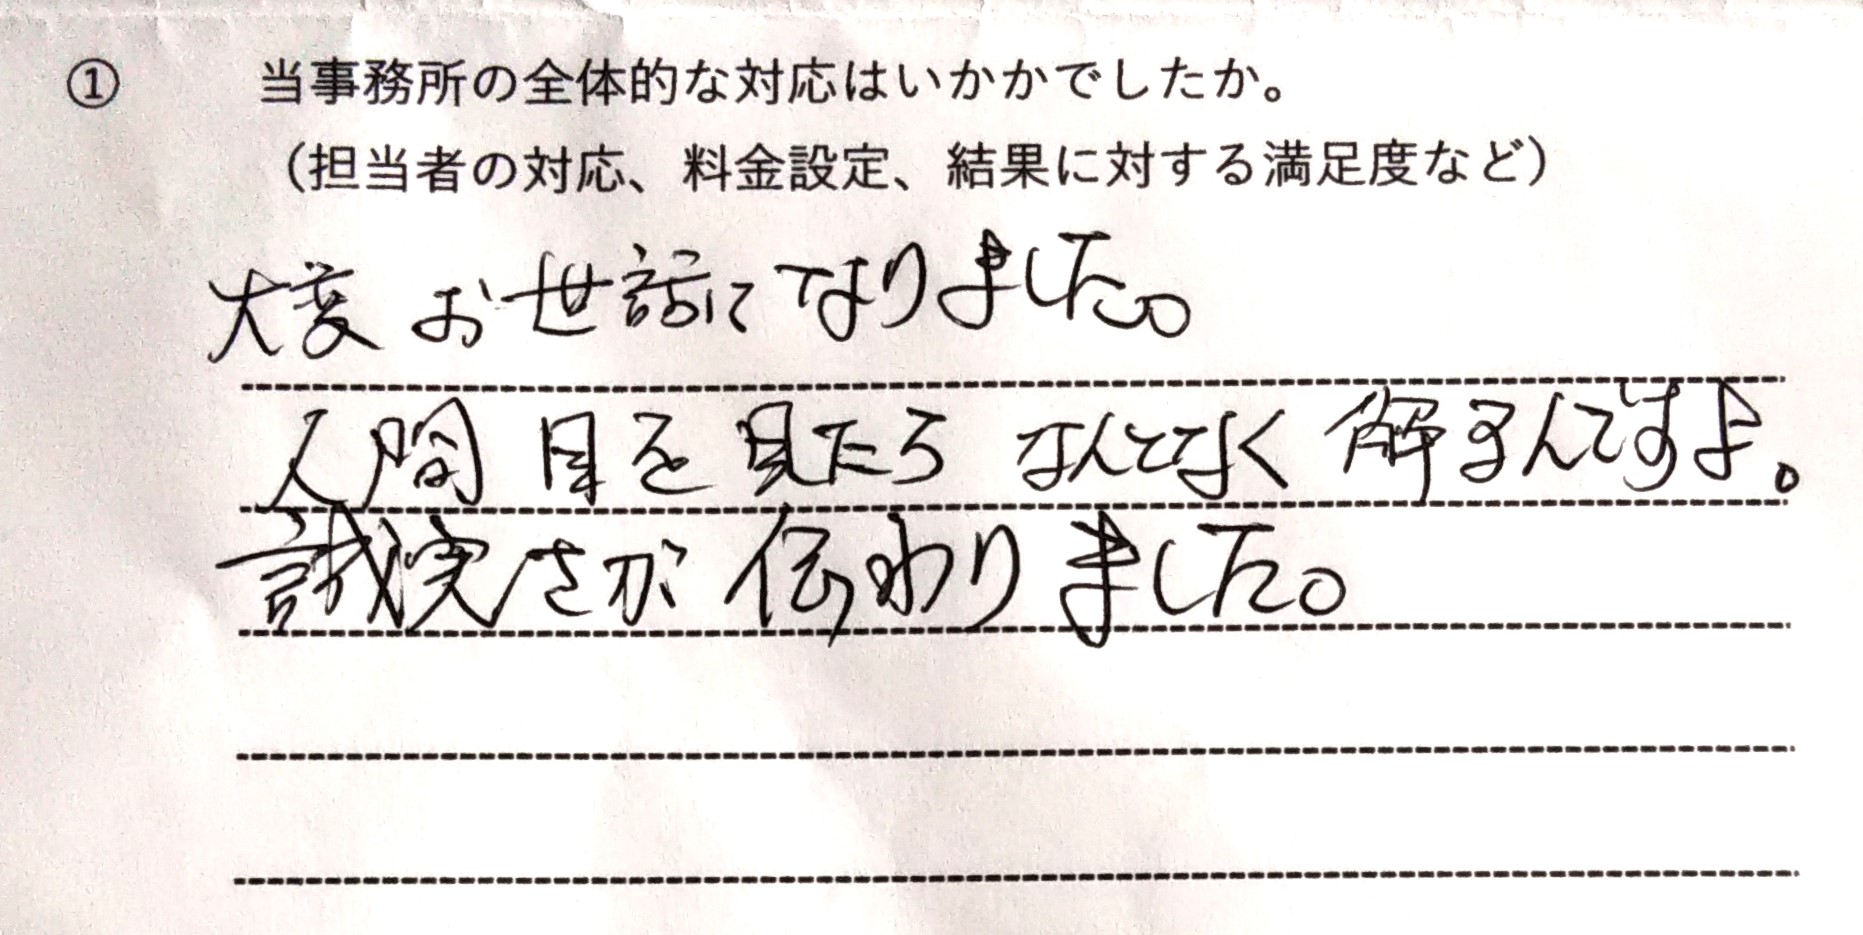 ① 当事務所の全体的な対応はいかかでしたか。
（担当者の対応、料金設定、結果に対する満足度など）
大変お世話になりました。
人間 目を見たら なんとなく 解るんですよ。
誠実さが 伝わりました。